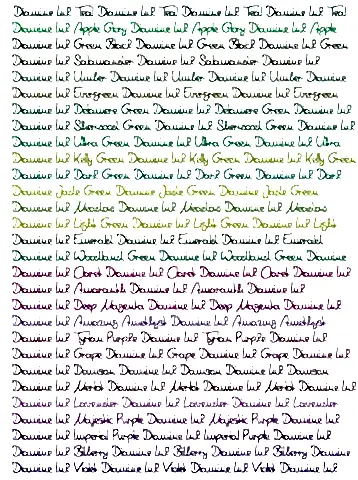 Diamine Ink Teal Diamine Ink Teal Diamine Ink Teal Diamine Ink Teal
Diamine Ink Apple Glory Diamine Ink Apple Glory Diamine Ink Apple
Diamine Ink Green Black Diamine Ink Green Black Diamine Ink Green
Diamine Ink Salamander Diamine Ink Salamander Diamine Ink
Diamine Ink Umber Diamine Ink Umber Diamine Ink Umber Diamine
Diamine Ink Evergreen Diamine Ink Evergreen Diamine Ink Evergreen
Diamine Ink Delamere Green Diamine Ink Delamere Green Diamine Ink
Diamine Ink Sherwood Green Diamine Ink Sherwood Green Diamine Ink
Diamine Ink Ultra Green Diamine Ink Ultra Green Diamine Ink Ultra
Diamine Ink Kelly Green Diamine Ink Kelly Green Diamine Ink Kelly Green
Diamine Ink Dark Green Diamine Ink Dark Green Diamine Ink Dark
Diamine Jade Green Diamine Jade Green Diamine Jade Green
Diamine Ink Meadow Diamine Ink Meadow Diamine Ink Meadow
Diamine Ink Light Green Diamine Ink Light Green Diamine Ink Light
Diamine Ink Emerald Diamine Ink Emerald Diamine Ink Emerald
Diamine Ink Woodland Green Diamine Ink Woodland Green Diamine
Diamine Ink Claret Diamine Ink Claret Diamine Ink Claret Diamine Ink
Diamine Ink Amaranth Diamine Ink Amaranth Diamine Ink
Diamine Ink Deep Magenta Diamine Ink Deep Magenta Diamine Ink
Diamine Ink Amazing Amethyst Diamine Ink Amazing Amethyst
Diamine Ink Tyrian Purple Diamine Ink Tyrian Purple Diamine Ink
Diamine Ink Grape Diamine Ink Grape Diamine Ink Grape Diamine Ink
Diamine Ink Damson Diamine Ink Damson Diamine Ink Damson
Diamine Ink Merlot Diamine Ink Merlot Diamine Ink Merlot Diamine Ink
Diamine Ink Lavender Diamine Ink Lavender Diamine Ink Lavender
Diamine Ink Majestic Purple Diamine Ink Majestic Purple Diamine Ink
Diamine Ink Imperial Purple Diamine Ink Imperial Purple Diamine Ink
Diamine Ink Bilberry Diamine Ink Bilberry Diamine Ink Bilberry
Diamine Ink Violet Diamine Ink Violet Diamine Ink Violet Diamine Ink